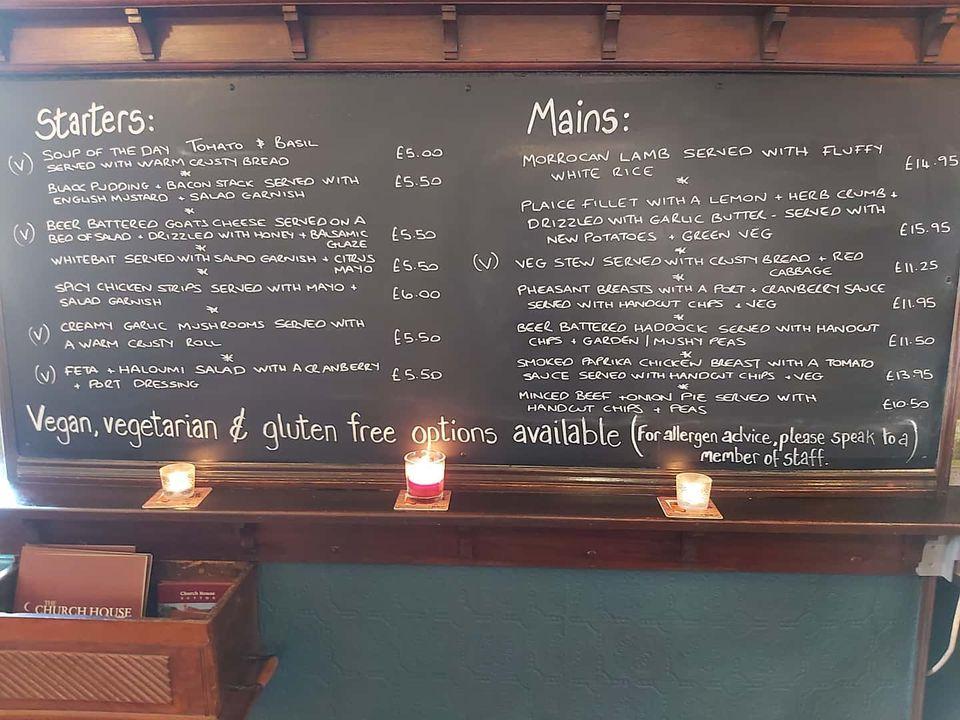 Starters:
(V) SOUP OF THE DAY TOMATO & BASIL
SERVED WITH WARM CRUSTY BREAD £5.00
*
BLACK PUDDING + BACON STACK SERVED WITH £5.50
ENGLISH MUSTARD + SALAD GARNISH
*
(V) BEER BATTERED GOATS CHEESE SERVED ON A
BED OF SALAD + DRIZZLED WITH HONEY + BALSAMIC £5.50
GLAZE
*
WHITEBAIT SERVED WITH SALAD GARNISH + CITRUS £5.50
MAYO
*
SPICY CHICKEN STRIPS SERVED WITH MAYO + £6.00
SALAD GARNISH
*
(V) CREAMY GARLIC MUSHROOMS SERVED WITH
A WARM CRUSTY ROLL £5.50
*
(V) FETA + HALOUMI SALAD WITH A CRANBERRY £5.50
+ PORT DRESSING
Mains:
MORROCAN LAMB SERVED WITH FLUFFY £14.95
WHITE RICE
*
PLAICE FILLET WITH A LEMON + HERB CRUMB +
DRIZZLED WITH GARLIC BUTTER - SERVED WITH £15.95
NEW POTATOES + GREEN VEG
*
(V) VEG STEW SERVED WITH CRUSTY BREAD + RED £11.25
CABBAGE
*
PHEASANT BREASTS WITH A PORT + CRANBERRY SAUCE
SERVED WITH HANDCUT CHIPS + VEG £11.95
*
BEER BATTERED HADDOCK SERVED WITH HANDCUT
CHIPS + GARDEN / MUSHY PEAS £11.50
*
SMOKED PAPRIKA CHICKEN BREAST WITH A TOMATO
SAUCE SERVED WITH HANDCUT CHIPS + VEG £13.95
*
MINCED BEEF + ONION PIE SERVED WITH £10.50
HANDCUT CHIPS + PEAS
Vegan, vegetarian & gluten free options available (For allergen advice, please speak to a
member of staff.)
THE
CHURCH HOUSE
Church House